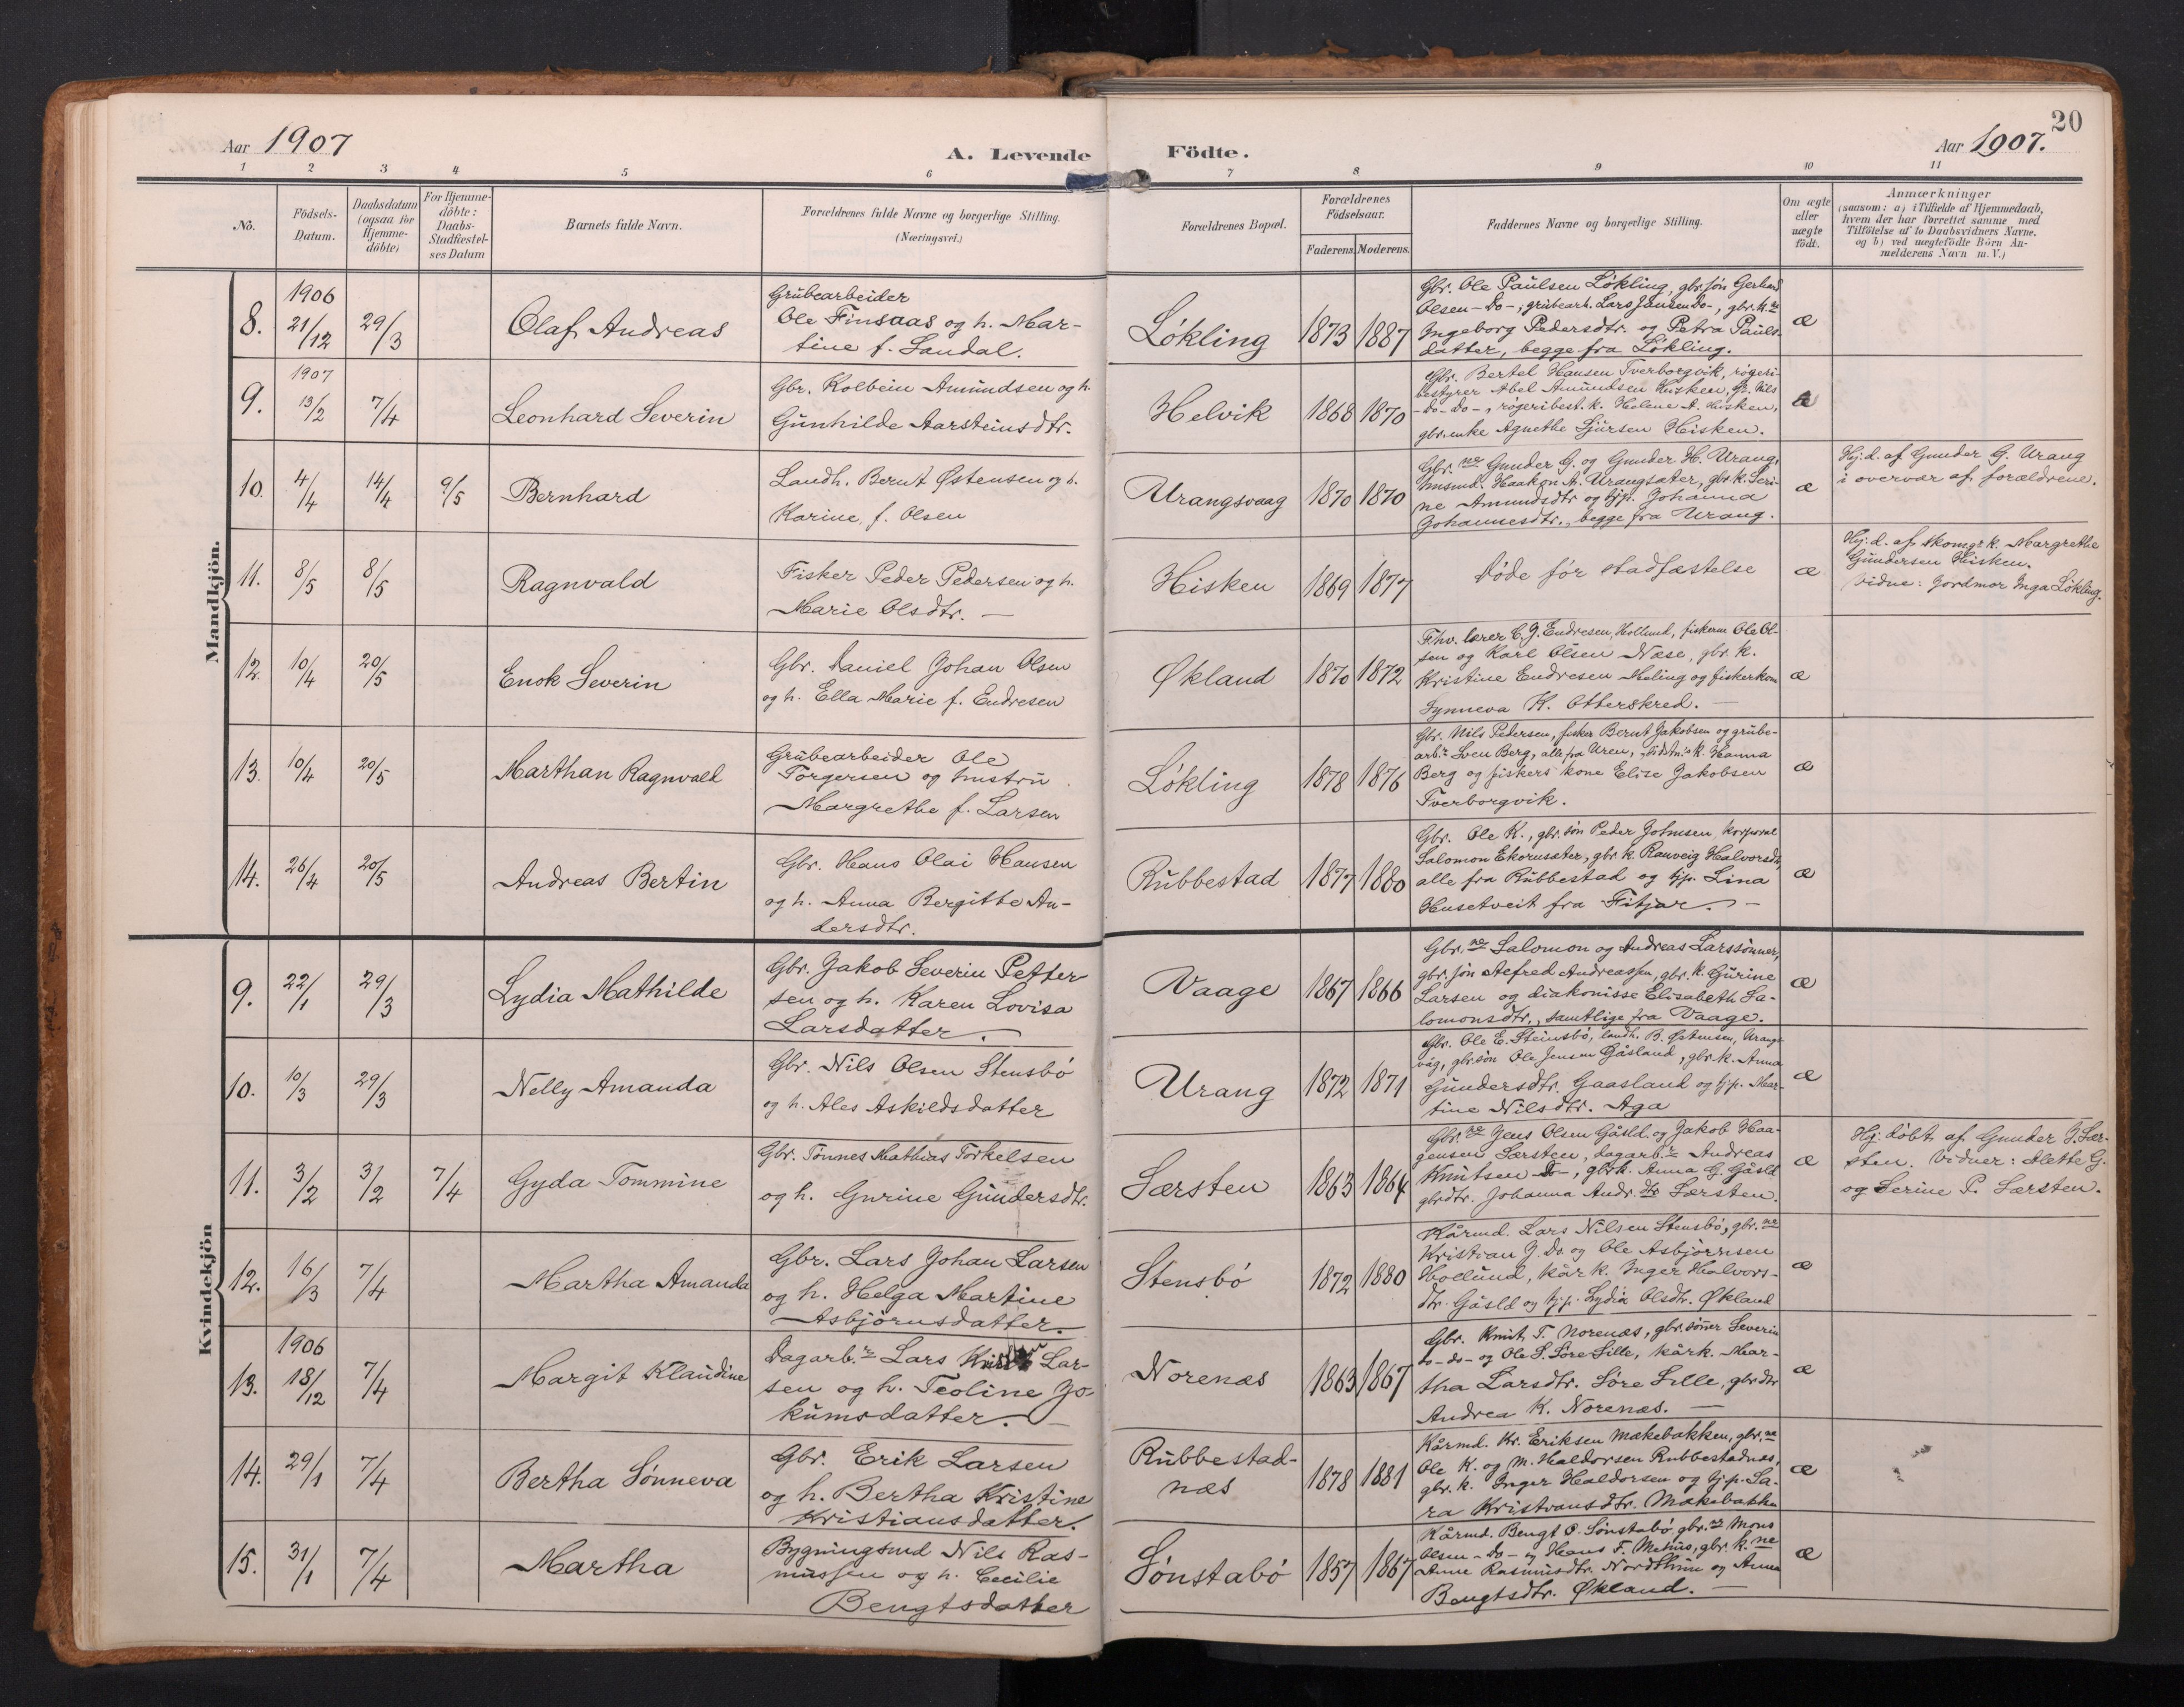 20
Aar 1907
A. Levende Födte.
Aar 1907.
1 2 3 4 5 6 7 8 9 10 11
No.
Födsels-
Datum.
Daabsdatum
(ogsaa for
Hjemme-
döbte)
For Hjemme-
döbte:
Daabs-
Stadfæstel-
ses Datum
Barnets fulde Navn.
Forældrenes fulde Navne og borgerlige Stilling.
(Næringsvei.)
Forældrenes Bopæl.
Forældrenes
Födselsaar.
Faderens. Moderens.
Faddernes Navne og borgerlige Stilling.
Om ægte
eller
uægte
födt.
Anmærkninger
(saasom: a) i Tilfælde af Hjemmedaab,
hvem der har forrettet samme med
Tilföielse af to Daabsvidners Navne.
og b) ved uægtefödte Börn An-
melderens Navn m. V.)
Mandkjön.
8.
1906
21/12
29/3
Olaf Andreas
Grubearbeider
Ole Finsaas og h. Mar-
tine f. Sandal.
Løkling
1873 1887
Gbr. Ole Paulsen Løkling, gbr. søn Gerhard
Olsen - Do -, grubearb. Lars Jansen Do -, gbr. k.ne
Ingeborg Pedersdtr. og Petra Pauls-
datter, begge fra Løkling.
æ
9.
1907
13/2
7/4
Leonhard Severin
Gbr. Kolbein Amundsen og h.
Gunhilde Aarsteinsdtr.
Helvik
1868 1870
Gbr. Bertel Hansen Tverborgvik, røgeri-
bestyrer Abel Amundsen Hisken, Nils
- do - do -, røgeribest. k. Helene A. Hisken,
gbr. enke Agnethe Sjursen Hisken.
æ
10.
4/4
14/4
9/5
Bernhard
Landh. Bernt Østensen og h.
Karine f. Olsen
Urangsvaag
1870 1870
Gbr.ne Gunder G. og Gunder H. Urang,
Haakon A. Urangsater, gbr. k. Seri-
ne Amundsdtr og tjp. Johanna
Johannesdtr., begge fra Urang.
æ
Hj. d. af Gunder G. Urang
i overvær af forældrene.
11.
8/5
8/5
Ragnvald
Fisker Peder Pedersen og h.
Marie Olsdtr. —
Hisken
1869 1877
Døde før stadfæstelse
æ
Hj. d. af skomgr k. Margrethe
Gundersen Hisken.
Vidne: Jordmor Inga Løkling.
12.
10/4
20/5
Enok Severin
Gbr. Daniel Johan Olsen
og h. Ella Marie f. Endresen
Økland
1870 1872
Fhv. lærer C. J. Endresen, Hollund, fiskerne Ole Ol-
sen og Karl Olsen Næse, gbr. k.
Kristine Endresen Meling og fiskerkone
Synneva K. Otterskred. —
æ
13.
10/4
20/5
Marthan Ragnvald
Grubearbeider Ole
Torgersen og hustru
Margrethe f. Larsen
Løkling
1878 1876
Gbr. Nils Pedersen, fisker Bernt Jakobsen og grube-
arb.r Sven Berg, alle fra Uren, k. Hanna
Berg og fiskers kone Elise Jakobsen
Tverborgvik.
æ
14.
26/4
20/5
Andreas Bertin
Gbr. Hans Olai Hansen
og h. Anna Bergitte An-
dersdtr.
Rubbestad
1877 1880
Gbr. Ole K., gbr. søn Peder Johnsen, korporal
Salomon Ekornsæter, gbr. k. Ranveig Halvorsdtr,
alle fra Rubbestad og tjp. Lina
Husetveit fra Fitjar. —
æ
Kvindekjön
9.
22/1
29/3
Lydia Mathilde
Gbr. Jakob Severin Petter-
sen og h. Karen Lovisa
Larsdatter.
Vaage
1867 1866
Gbr.ne Salomon og Andreas Larssønner,
gbr. søn Aefred Andreassen, gbr. k. Gurine
Larsen og diakonisse Elisabeth Sa-
lomonsdtr., samtlige fra Vaage.
æ
10.
10/3
29/3
Nelly Amanda
Gbr. Nils Olsen Stensbø
og h. Ales Askildsdatter
Urang
1872 1871
Gbr. Ole E. Steinsbø, landh. B. Østensen, Urangs-
våg, gbr. søn Ole Jensen Gåsland, gbr. k. Anna
Gundersdtr. Gaasland og tjp. Mar-
tine Nilsdtr. Aga
æ
11.
3/2
3/2
7/4
Gyda Tommine
Gbr. Tønnes Mathias Torkelsen
og h. Gurine Gundersdtr.
Særsten
1863 1864
Gbr.ne Jens Olsen Gåsld. og Jakob Haa-
gensen Særsten, dagarb.r Andreas
Knutsen - Do -, gbr. k. Anna G. Gåsld
gbrdtr. Johanna Andr.dtr Særsten.
æ
Hj. døbt af Gunder J. Sær-
sten. Vidner: Alette G.
og Serine P. Særsten.
12.
16/3
7/4
Martha Amanda
Gbr. Lars Johan Larsen
og h. Helga Martine
Asbjørnsdatter.
Stensbø
1872 1880
Kårmd. Lars Nilsen Stensbø, gbr.ne
Kristian J. Do. og Ole Asbjørnsen
Hollund, kår k. Inger Halvors-
dtr. Gåsld og tjp. Lydia Olsdtr. Økland
æ
13.
1906
18/12
7/4
Margit Klaudine
Dagarb.r Lars Lar-
sen og h. Teoline Jo-
kumsdatter. —
Norenæs
1863 1867
Gbr. Knut T. Norenæs, gbr. sønner Severin
- do - do - og Ole S. Søre Lille, kårk. Mar-
tha Larsdtr. Søre Lille, gbrdtr
Andrea K. Norenæs. —
æ
14.
29/1
7/4
Bertha Sønneva
Gbr. Erik Larsen
og h. Bertha Kristine
Kristiansdatter.
Rubbestad-
næs
1878 1881
Kårmd. Kr. Eriksen Mækebakken, gbr.ne
Ole K. og M. Haldorsen Rubbestadnæs,
gbr. k. Inger Haldorsen og tjp. Sa-
ra Kristiansdtr. Mækebakken
æ
15.
31/1
7/4
Martha
Bygningsmd Nils Ras-
mussen og h. Cecilie
Bengtsdatter
Sønstabø
1857 1867
Kårmd. Bengt O. Sønstabø, gbr.ne Mons
Olsen - Do - og Hans F. Mehus, gbr. k.ne
Anne Rasmusdtr. Nordthun og Anna
Bengtsdtr. Økland. —
æ